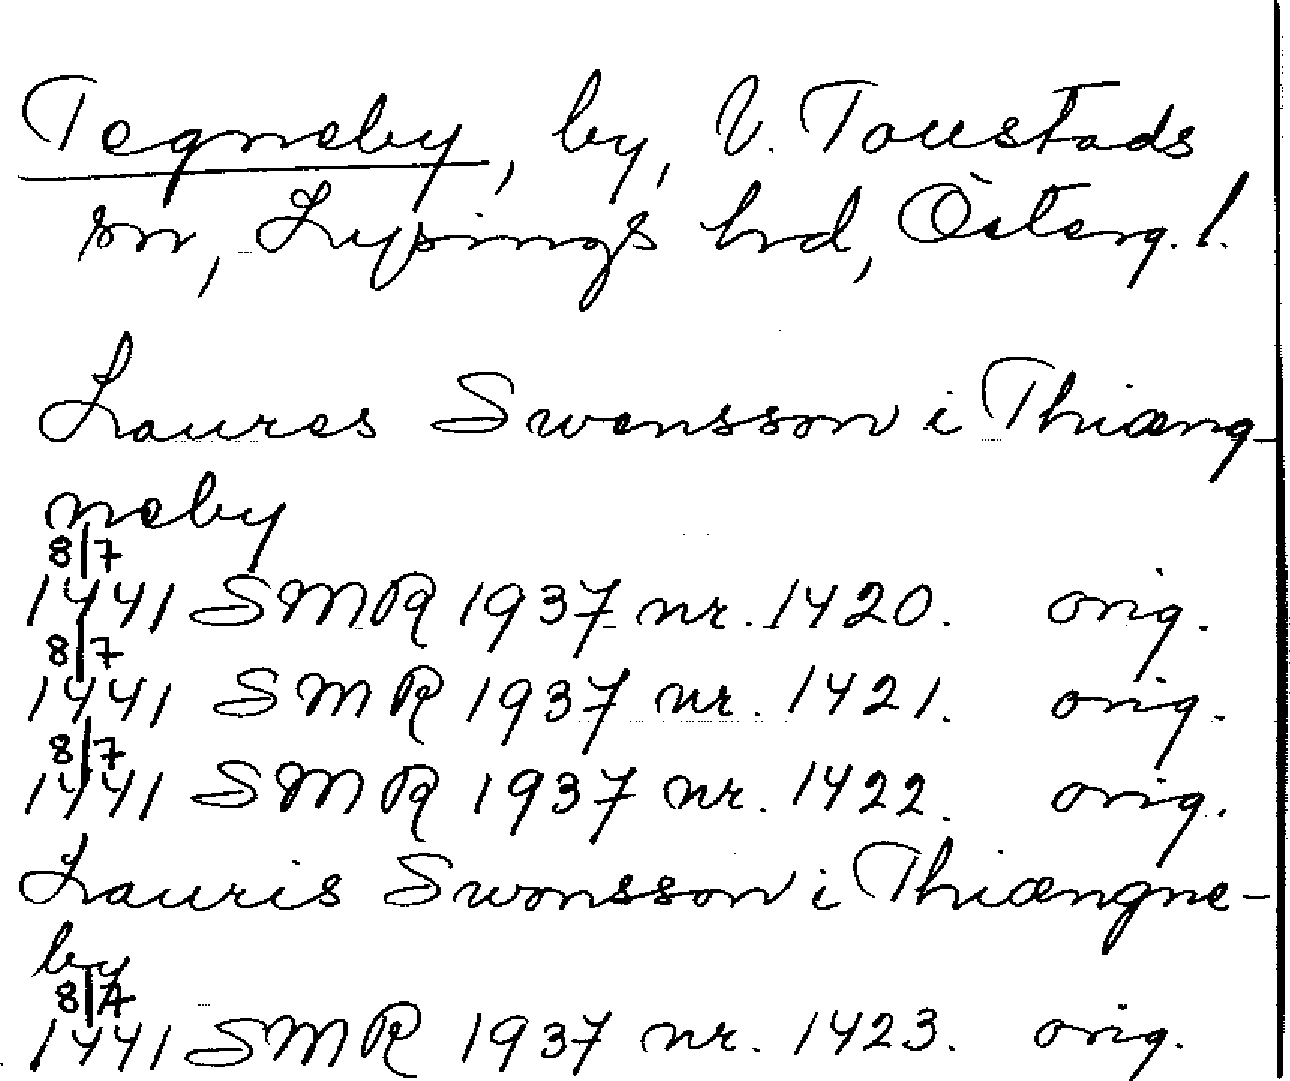 Tegneby, by, V. Toustads
sn, Lysings hrd, Österg. l.
Laures Swensson i Thiæng-
neby
8/7
1441 SMR 1937 nr. 1420. orig.
8/7
1441 SMR 1937 nr. 1421. orig.
8/7
1441 SMR 1937 nr. 1422. orig.
Lauris Swensson i Thiængne-
by
8/7
1441 SMR 1937 nr. 1423. orig.